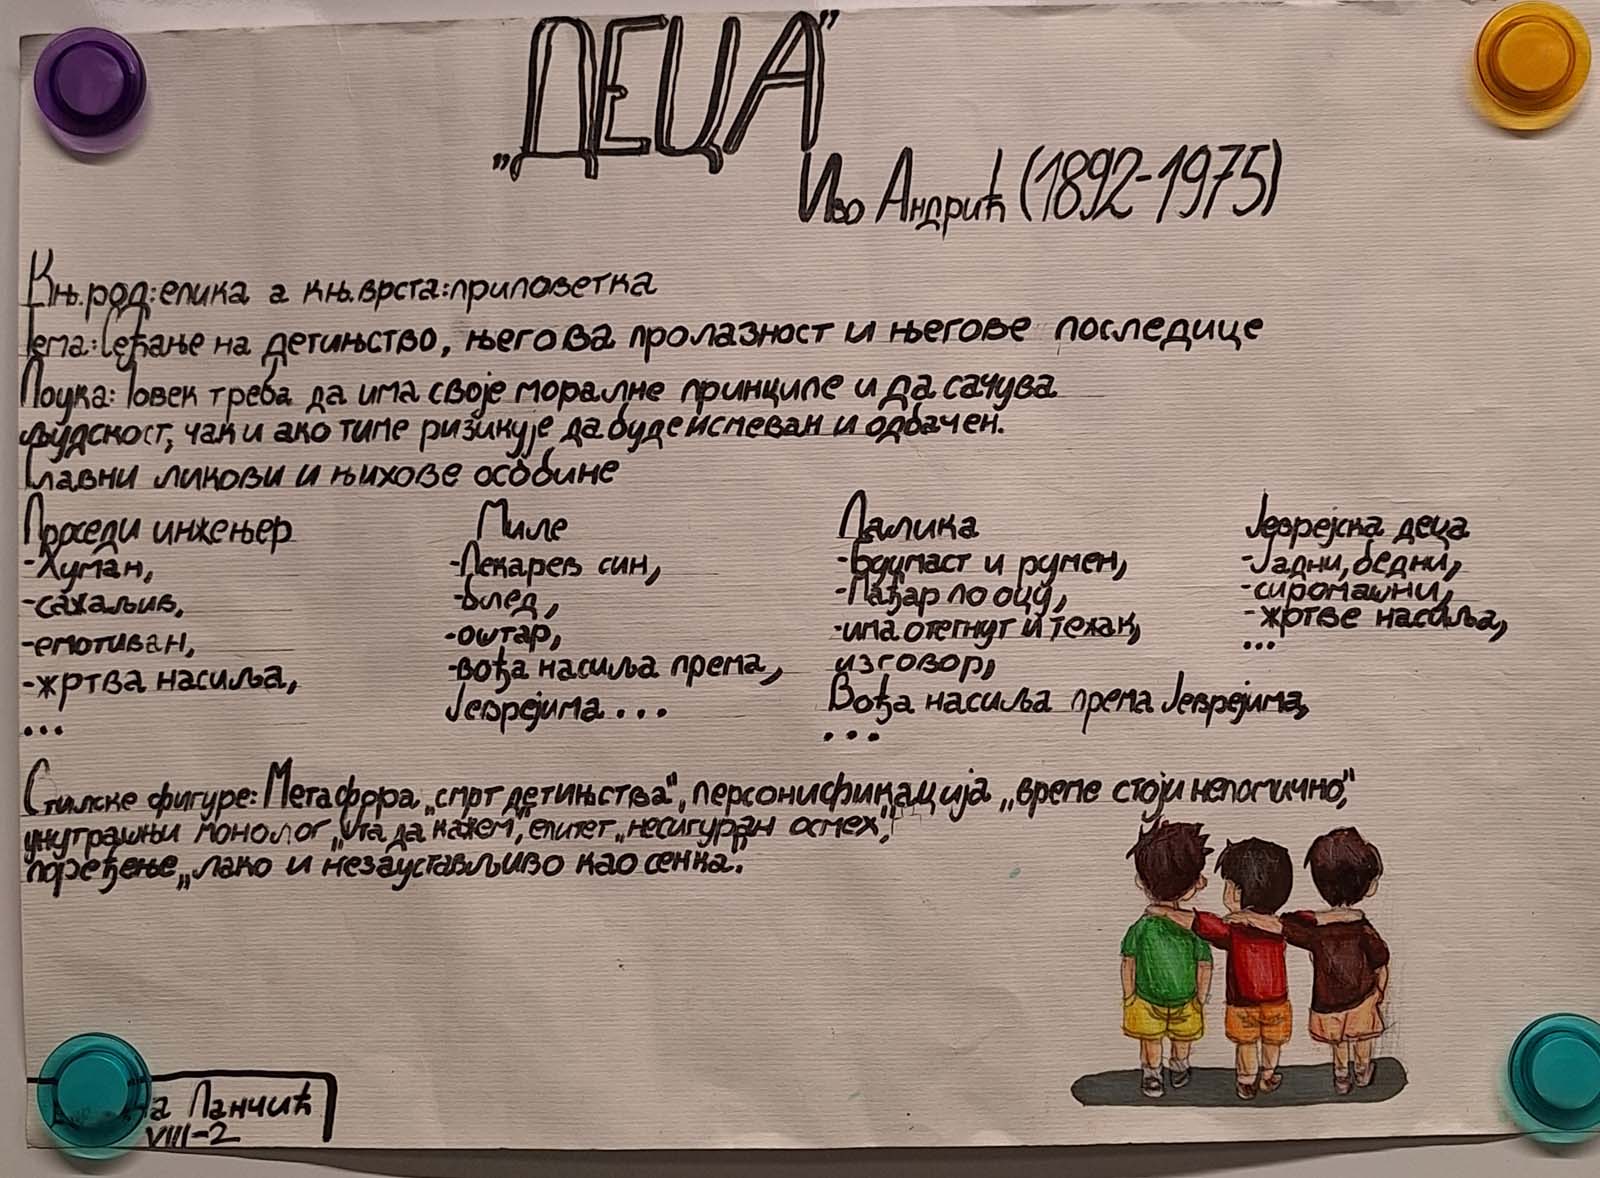 „ДЕЦА”
Иво Андрић (1892-1975)
Књ.род:епика а књ.врста:приповетка
Тема:Сећање на детињство, његова пролазност и његове последице
Поука: Човек треба да има своје моралне принципе и да сачува
људскост, чак и ако тиме ризикује да буде исмеван и одбачен.
Главни ликови и њихове особине
Проседи инжењер
-Хуман,
-сажаљив,
-емотиван,
-жртва насиља,
...
Миле
-Пекарев син,
-блед,
-оштар,
-вођа насиља према,
Јеврејима...
Палика
-Буцмаст и румен,
-Мађар по оцу,
-има отегнут и тежак,
изговор,
Вођа насиља према Јеврејима,
...
Јеврејска деца
-Јадни, бедни,
-сиромашни,
-жртве насиља,
...
Стилске фигуре: Метафора „смрт детињства”, персонификација „време стоји непомично”,
унутрашњи монолог „Шта да кажем”, епитет „несигуран осмех”,
поређење „лако и незаустављиво као сенка”.
Панчић
VIII-2